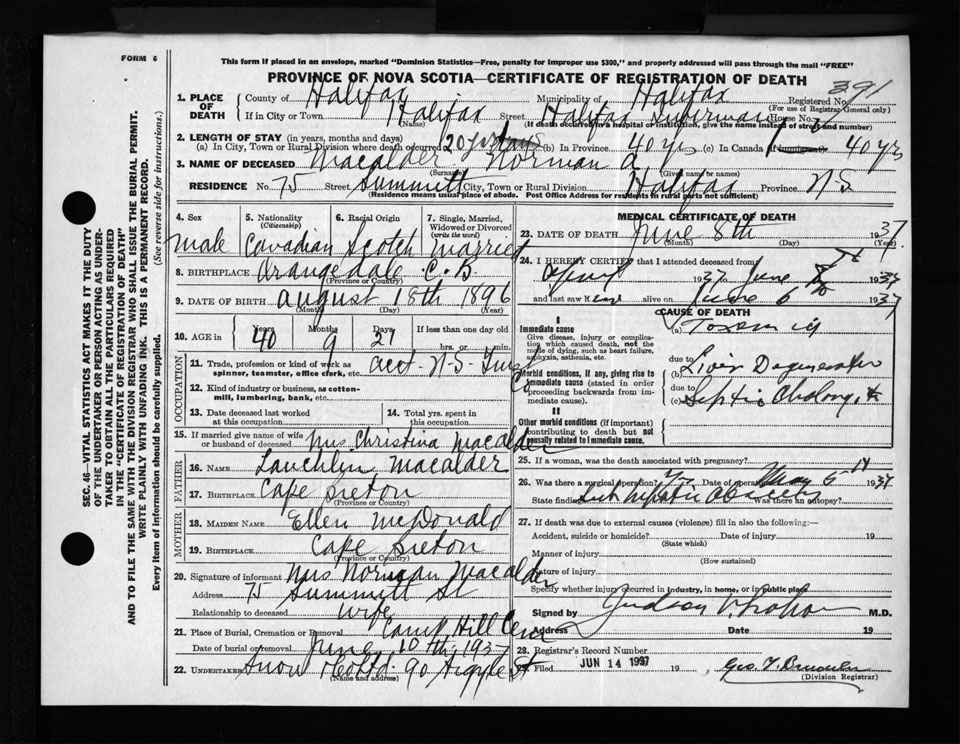 FORM 6
This form if placed in an envelope, marked "Dominion Statistics—Free, penalty for improper use $300," and properly addressed will pass through the mail "FREE"
PROVINCE OF NOVA SCOTIA—CERTIFICATE OF REGISTRATION OF DEATH
SEC. 46—VITAL STATISTICS ACT MAKES IT THE DUTY
OF THE UNDERTAKER OR PERSON ACTING AS UNDER-
TAKER TO OBTAIN ALL THE PARTICULARS REQUIRED
IN THE "CERTIFICATE OF REGISTRATION OF DEATH"
AND TO FILE THE SAME WITH THE DIVISION REGISTRAR WHO SHALL ISSUE THE BURIAL PERMIT.
WRITE PLAINLY WITH UNFADING INK. THIS IS A PERMANENT RECORD.
Every item of information should be carefully supplied. (See reverse side for instructions.)
1. PLACE OF DEATH County of Halifax Municipality of Halifax Registered No. 391
(For use of Registrar General only)
If in City or Town Halifax Street Halifax Infirmary House No.
(Name) (If death occurred in a hospital or institution, give the name instead of street and number)
2. LENGTH OF STAY (in years, months and days)
(a) In City, Town or Rural Division where death occurred 20 yrs (b) In Province 40 yrs (c) In Canada (if immigrant) 40 yrs
3. NAME OF DECEASED Macalder Norman A
(Surname) (Given name or names)
RESIDENCE No. 75 Street Summitt City, Town or Rural Division Halifax Province N S
(Residence means usual place of abode. Post Office Address for residents in rural parts not sufficient)
4. Sex
male
5. Nationality (Citizenship)
Canadian
6. Racial Origin
Scotch
7. Single, Married, Widowed or Divorced (write the word)
married
8. BIRTHPLACE Orangedale C.B
(Province or Country)
9. DATE OF BIRTH august 18th 1896
(Month) (Day) (Year)
10. AGE in Years 40 Months 9 Days 21 If less than one day old
hrs. or min.
OCCUPATION
11. Trade, profession or kind of work as spinner, teamster, office clerk, etc. acct N.S. Trust Co
12. Kind of industry or business, as cotton-mill, lumbering, bank, etc.
13. Date deceased last worked at this occupation
14. Total yrs. spent in this occupation
15. If married give name of wife or husband of deceased Mrs Christina Macalder
FATHER
16. NAME Lauchlin Macalder
17. BIRTHPLACE Cape Breton
(Province or Country)
MOTHER
18. MAIDEN NAME Ellen McDonald
19. BIRTHPLACE Cape Breton
(Province or Country)
20. Signature of informant Mrs Norman Macalder
Address 75 Summitt St
Relationship to deceased wife
21. Place of Burial, Cremation or Removal Camp Hill Cem
Date of burial or removal June 10th 1937
22. UNDERTAKER Snow & Co Ltd. 90 Argyle St
(Name and address)
MEDICAL CERTIFICATE OF DEATH
23. DATE OF DEATH June 8th 1937
(Month) (Day) (Year)
24. I HEREBY CERTIFY that I attended deceased from
April 1937 to June 8 1937
and last saw h alive on June 6 1937
CAUSE OF DEATH
I
Immediate cause
Give disease, injury or complication which caused death, not the mode of dying, such as heart failure, asphyxia, asthenia, etc.
(a) Toxemia
due to
Morbid conditions, if any, giving rise to immediate cause (stated in order proceeding backwards from immediate cause).
(b) Liver Degeneration
due to
(c) Septic Cholangitis
II
Other morbid conditions (if important) contributing to death but not causally related to immediate cause.
25. If a woman, was the death associated with pregnancy?
26. Was there a surgical operation? Yes Date of operation May 6 1937
State findings Sub hepatic Abscess Was there an autopsy?
27. If death was due to external causes (violence) fill in also the following:—
Accident, suicide or homicide? Date of injury 19
(State which)
Manner of injury
(How sustained)
Nature of injury
Specify whether injury occurred in industry, in home, or in public place
Signed by Judson V. Graham M.D.
Address Date 19
28. Registrar's Record Number
29. Filed JUN 14 1937 19
(Division Registrar)